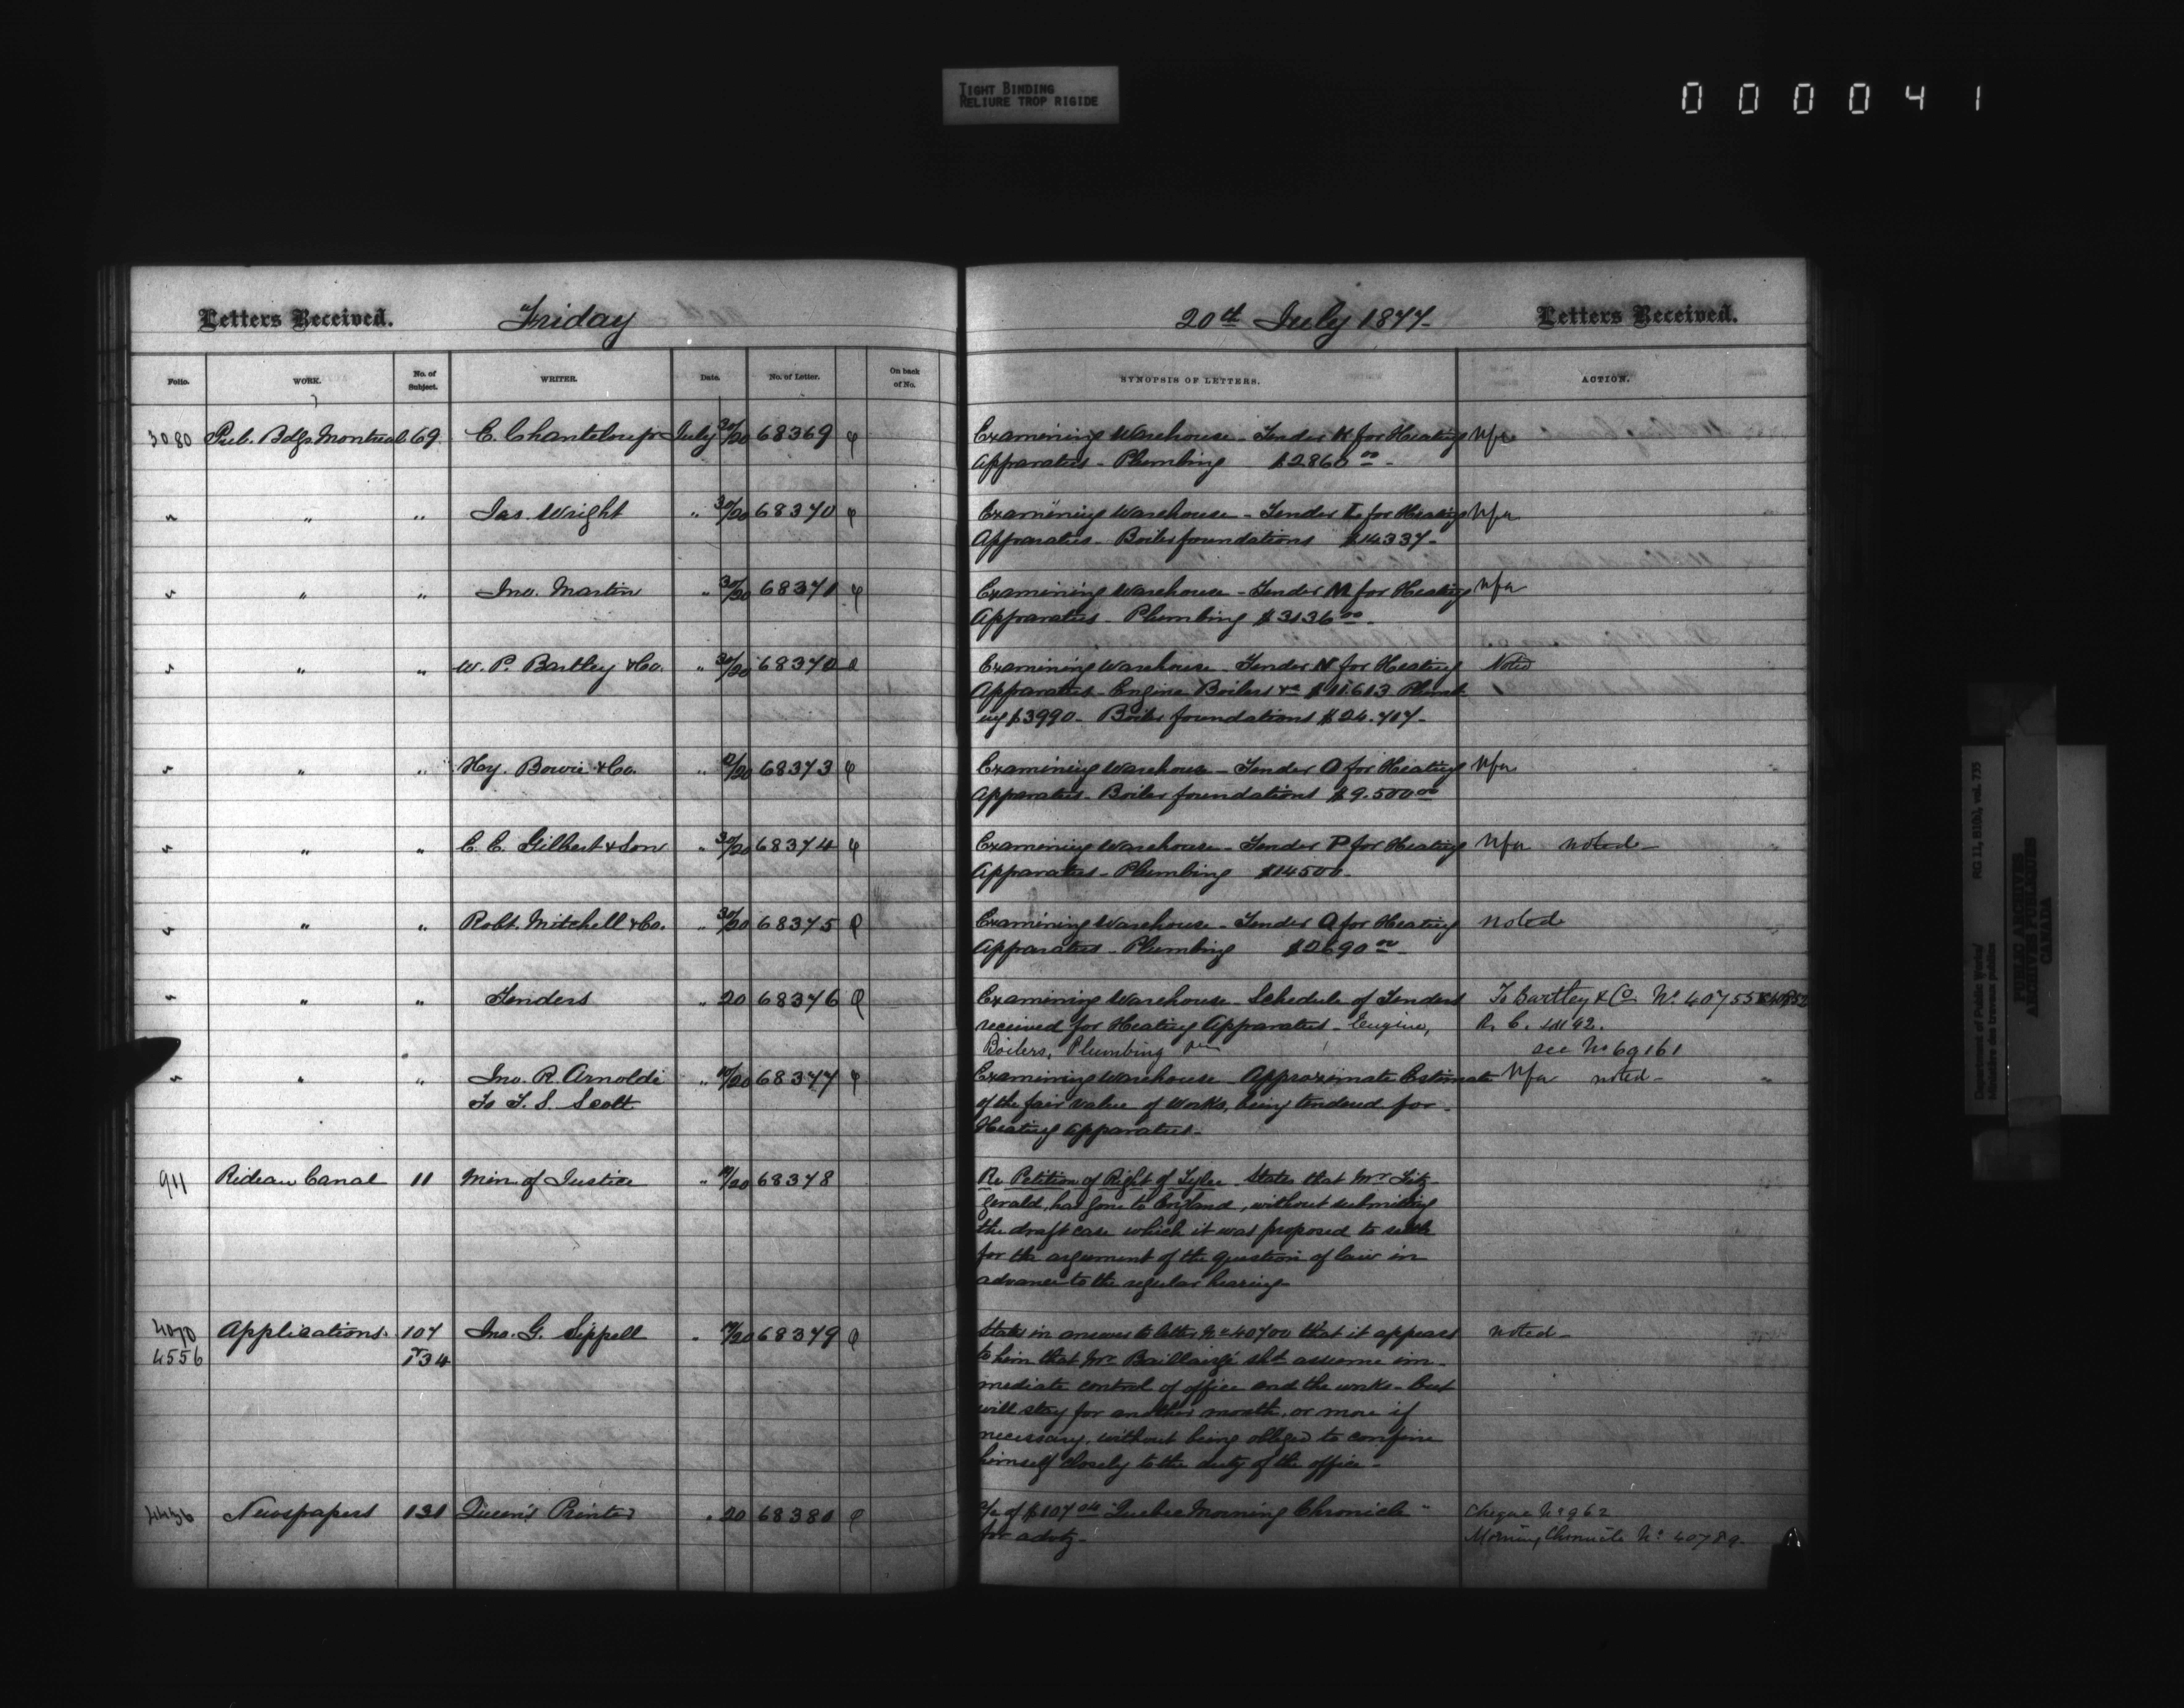 TIGHT BINDING
RELIURE TROP RIGIDE
000041
Letters Received. Friday 20th July 1877- Letters Received.
Folio. WORK. No. of Subject. WRITER. Date. No. of Letter. On back of No. SYNOPSIS OF LETTERS. ACTION.
3080 Pub. Bdgs. Montreal 69 E. Chanteloup July 20 68369 Examining Warehouse - Tender K for Heating Nfa
Apparatus - Plumbing $2860 00 -
" " " Jas. Wright " 20 68370 Examining Warehouse - Tender L for Heating Nfa
Apparatus - Boiler foundations $14337-
" " " Jno. Martin " 20 68371 Examining Warehouse - Tender M for Heating Nfa
Apparatus - Plumbing $3136 00 -
" " " W. P. Bartley & Co. " 20 68372 Examining Warehouse - Tender N for Heating Noted
Apparatus - Engine Boilers &c $11.613 Plumb-
ing $3990 - Boiler foundations $24.717-
" " " Hy. Bowie & Co. " 20 68373 Examining Warehouse - Tender O for Heating Nfa
Apparatus - Boiler foundations $9.500 00
" " " E. C. Gilbert & Son " 20 68374 Examining Warehouse - Tender P for Heating Nfa noted -
Apparatus - Plumbing $14500-
" " " Robt. Mitchell & Co. " 20 68375 Examining Warehouse - Tender Q for Heating noted
Apparatus - Plumbing $2690 00 -
" " " Tenders " 20 68376 Examining Warehouse - Schedule of Tenders To Bartley & Co. No. 40755
received for Heating Apparatus - Engine, R. C.
Boilers, Plumbing see No 69161
" " " Jno. R. Arnoldi " 20 68377 Examining Warehouse - Approximate Estimate Nfa noted -
To T. S. Scott of the fair value of works, being tendered for -
Heating apparatus -
911 Rideau Canal 11 Min. of Justice " 19/20 68378 Re Petition of Right of Tylee - States that Mr. Fitz-
gerald, has gone to England, without submitting
the draft case which it was proposed to settle
for the argument of the question of law in
advance to the regular hearing -
4070 Applications. 107 Jno. G. Sippell " 20 68379 States in answer to letter No 40700 that it appears noted -
4556 134 to him that Mr. Baillairgé shd assume im-
mediate control of office and the works - but
will stay for another month, or more if
necessary, without being obliged to confine
himself closely to the duty of the office -
4436 Newspapers 131 Queen's Printer " 20 68380 a/c of $107 "Quebec Morning Chronicle" Cheque No 962
for advtg - Morning Chronicle No. 40789.
Department of Public Works/ RG 11, B1(b), vol. 735
Ministère des travaux publics
PUBLIC ARCHIVES
ARCHIVES PUBLIQUES
CANADA